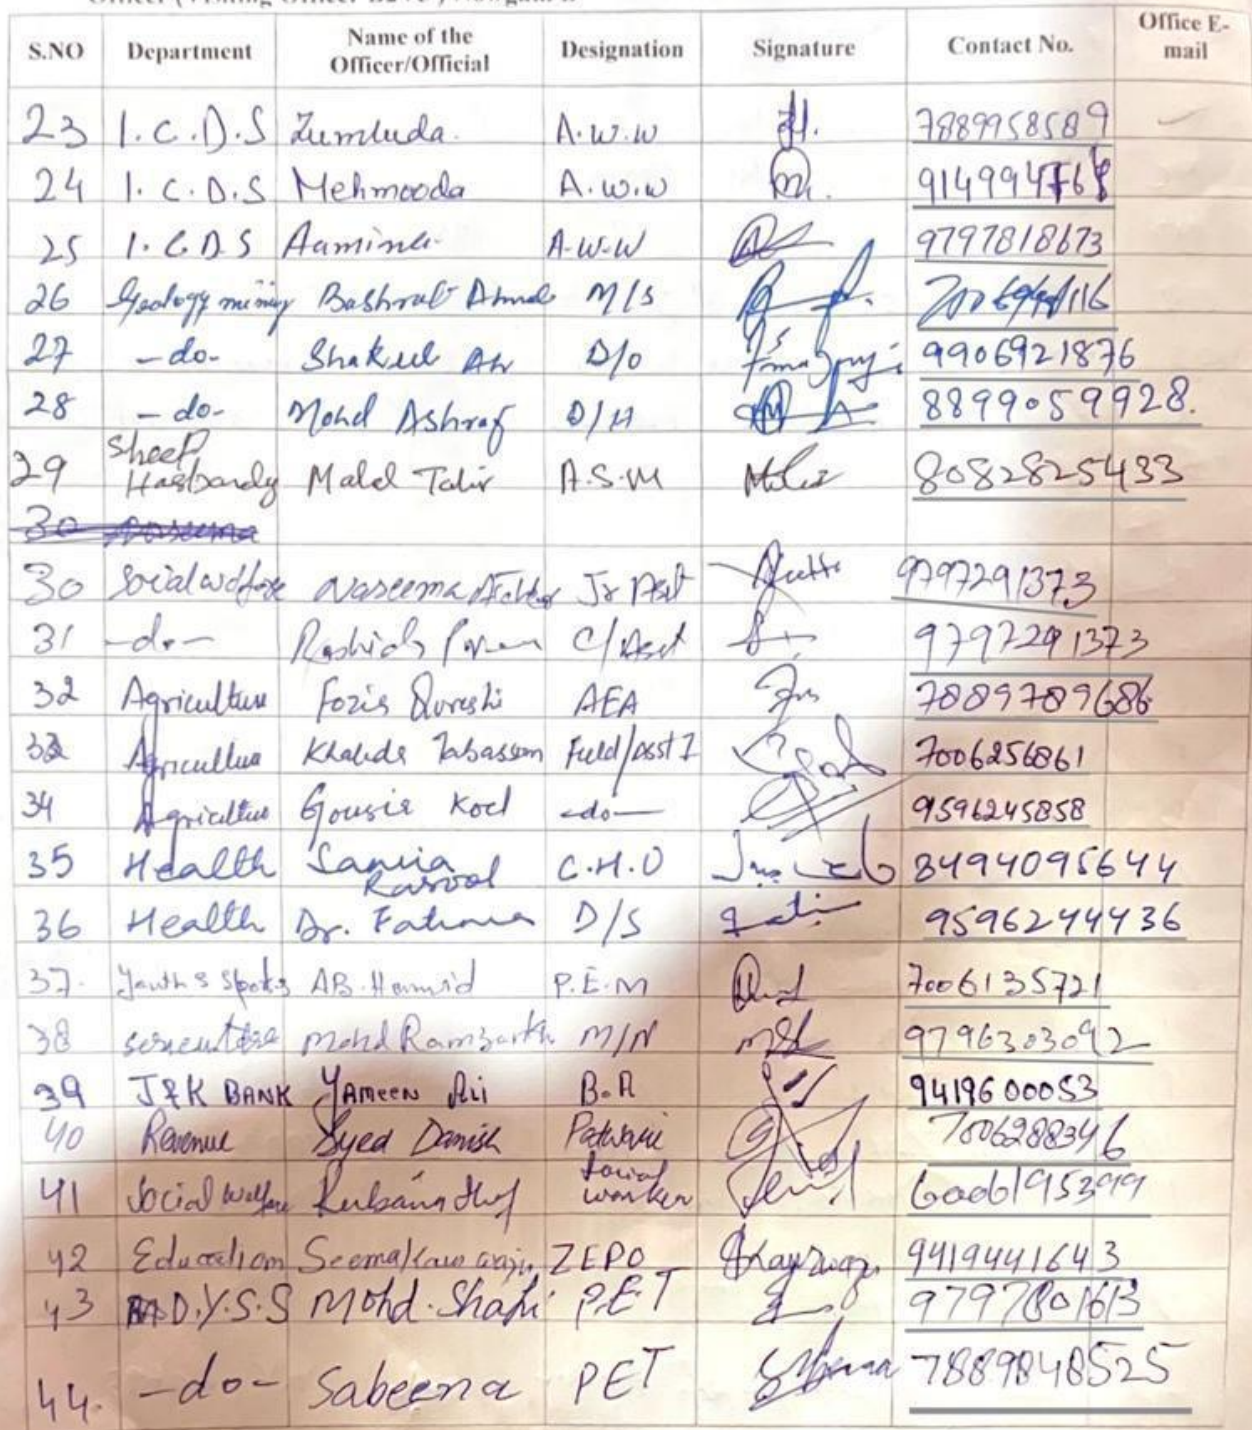 S.NO Department Name of the Officer/Official Designation Signature Contact No. Office E-mail
23 I.C.D.S Zumluda. A.W.W 7889958589
24 I.C.D.S Mehmooda A.W.W
25 I.C.D.S Aamina A-W-W 9797818673
26 Geology mining Bashrat Ahmd M/S
27 -do- Shakeel Ah D/O 9906921876
28 -do- Mohd Ashraf D/H 8899059928.
29 Sheep Hasbandy Tahir A.S.M 8082825433
30
30 Social welfare Naseema Akhter Jr Asst 9797291373
31 -do- C/Asst 9797291373
32 Agriculture Fozia Qureshi AEA 7889789686
33 Agricultua Khalida Tabassum Field/Asst I 7006256861
34 Agricultue Gousia Koel -do- 9596245858
35 Health Samia Rasool C.H.O 8494095644
36 Health Dr. Fatima D/S 9596244436
37. Youth S Sports AB. Hamid P.E.M 7006135721
38 Mohd M/N 9796303092
39 J&K BANK YAMEEN Ali B.A 9419600053
40 Revenue Syed Danish Patwari 7006288346
41 Social Welfare Social worker 6006195399
42 Education Seema ZEPO 9419441643
43 D.Y.S.S Mohd. Shafi P.E.T 9797801613
44. -do- Sabeena PET Sabeena 7889848525